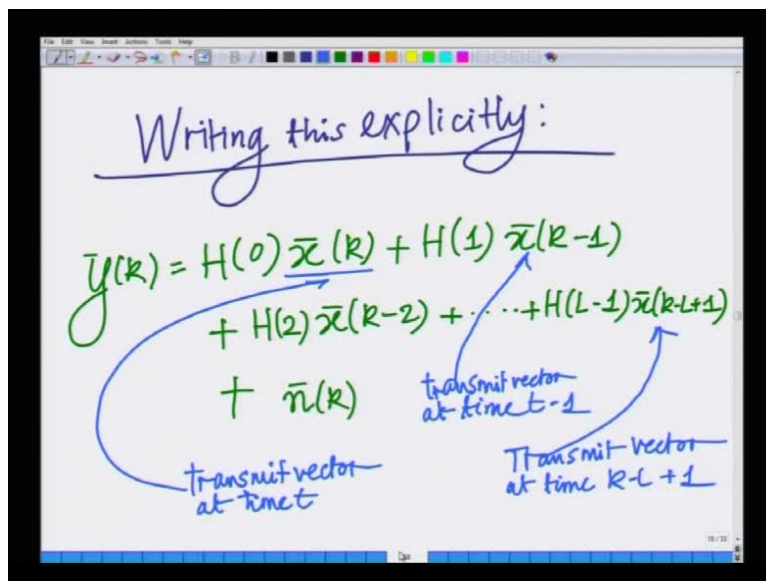 File Edit View Insert Actions Tools Help
B I
Writing this explicitly:
ȳ(k) = H(0) x̄(k) + H(1) x̄(k-1)
+ H(2) x̄(k-2) + ····+ H(L-1) x̄(k-L+1)
+ n̄(k)
transmit vector
at time t-1
Transmit vector
at time k-L+1
transmit vector
at time t